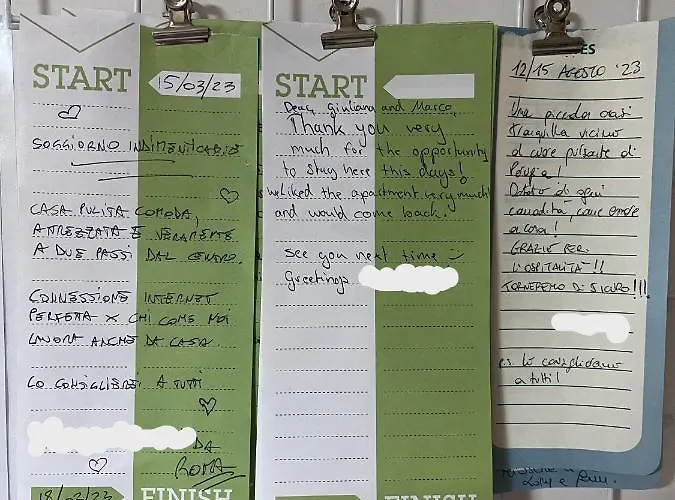 START
15/03/23
SOGGIORNO INDIMENTICABILE
CASA PULITA COMODA,
ATTREZZATA E VERAMENTE
A DUE PASSI DAL CENTRO.
CONNESSIONE INTERNET
PERFETTA X CHI COME NOI
LAVORA ANCHE DA CASA.
LO CONSIGLIEREI A TUTTI
DA
ROMA
18/03/23
FINISH
START
Dear Giuliana and Marco,
Thank you very
much for the opportunity
to stay here this days!
we liked the apartment very much
and would come back.
see you next time :)
Greetings
FINISH
ES
12/15 AGOSTO '23
Una piccola oasi
tranquilla vicino
al cuore pulsante di
Perugia!
Dotato di ogni
comodità, come essere
a casa!
GRAZIE PER
L'OSPITALITÀ!!
TORNEREMO DI SICURO!!!
P.S. lo consigliamo
a tutti!